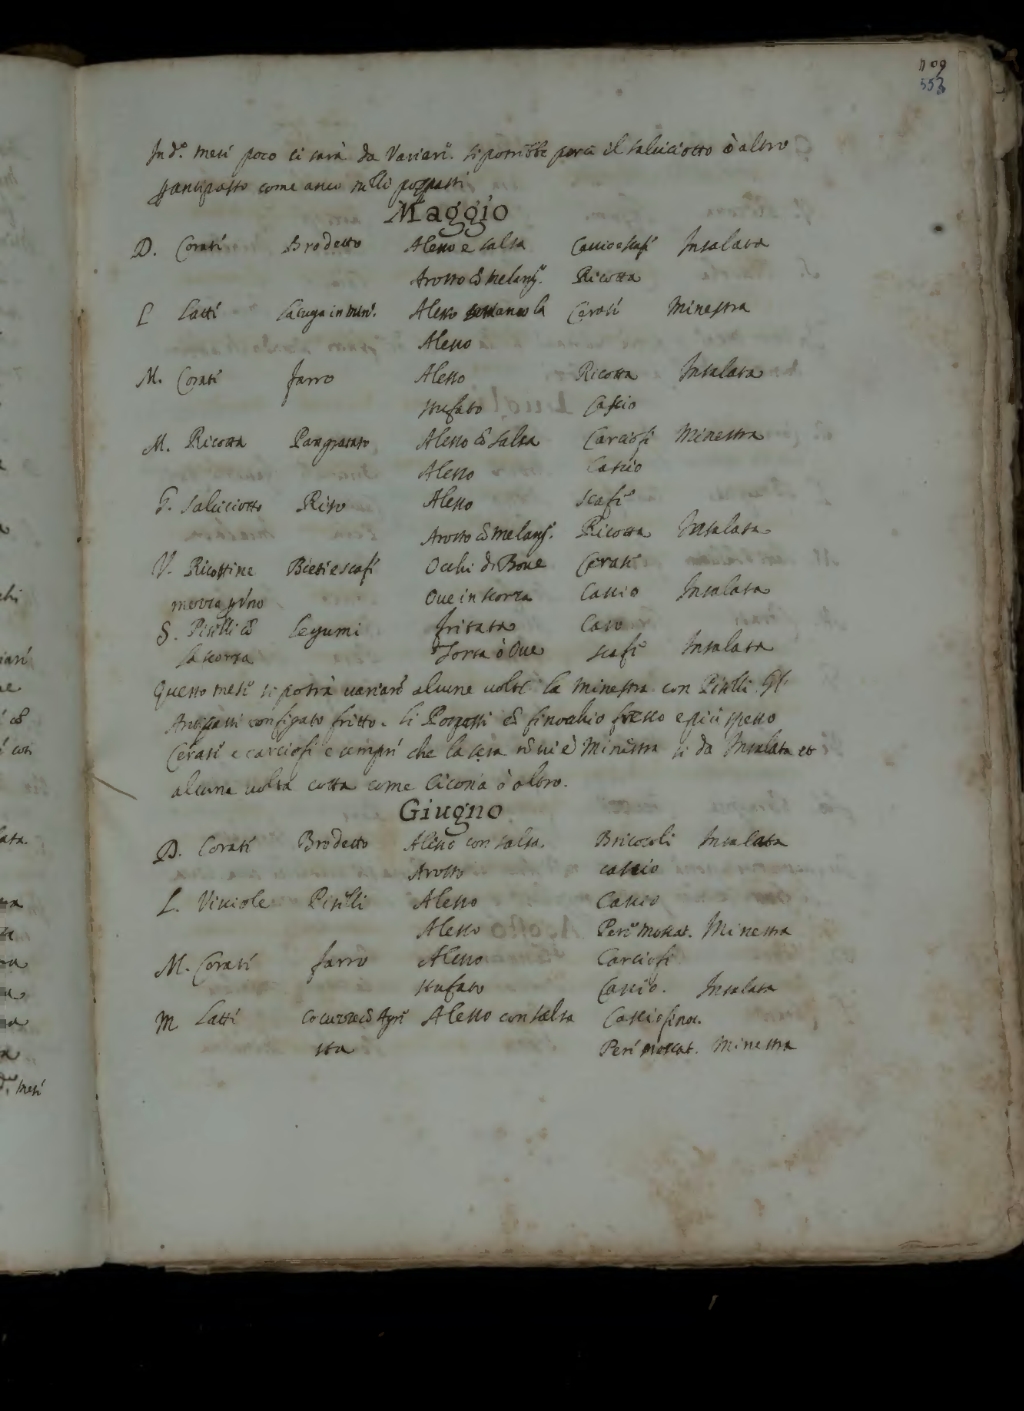 709
553
In d.º mesi poco ci sarà da Variari. si potrebbe però il salciciotto ò altro
p antipasto come anco nelli pospasti
Maggio
D. Corati Brodetto Alesso e salsa Cascio e scafi Insalata
Arosto cõ melang.º Ricotta
L Latti latuga in min.ª Alesso la Cerasi Minestra
Alesso
M. Corati farro Alesso Ricotta Insalata
stufato Cascio
M. Ricotta Pangratato Alesso cõ salsa Carciofi Minestra
Alesso Cascio
G. salciciotto Riso Alesso scafi
Arosto cõ melang.º Ricotta Insalata
V. Ricottine Bieti e scafi Occhi di Boue Cerasi
mezza p uno Oue in scorza Cascio Insalata
S. Piselli cõ legumi frittata Caso
la scorza Torta ò Oue scafi Insalata
Questo mesi si potrà variari alcune uolti la Minestra con Piselli. Gl'
Antipasti con figato fritto. li Pospasti cõ finochio fresco e più spesso
Cerasi e carciofi e sempri che la sera nõ ui è Minestra si da Insalata et
alcune uolta cotta come Cicoria ò altro.
Giugno
D. Corati Brodetto Alesso con salsa. Bricocoli Insalata
Arosto cascio
L. Visciole Piselli Alesso Cascio
Alesso Peri moscat. Minestra
M. Corati farro Alesso Carciofi
stufato Cascio. Insalata
M Latti Cocuzze cõ Agri Alesso con salsa Cascio
sta Peri moscat. Minestra